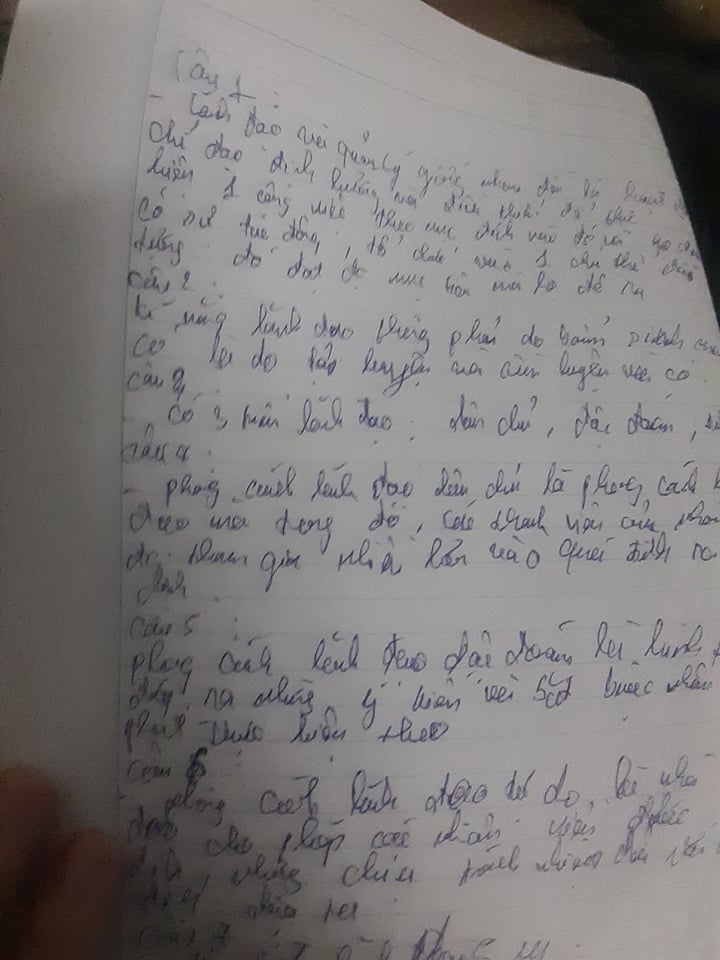 Câu 1 :
- Lãnh đạo và quản lý giống nhau đều là
chỉ đạo định hướng và điều khiển để
hiện 1 công việc theo mục đích nào đó và
có sự tác động, tổ chức vào 1
tượng đó đạt đc mục tiêu mà họ đề ra
câu 2 :
kĩ năng lãnh đạo không phải do bẩm sinh
có là do tập luyện và rèn luyện mà có.
câu 3
- Có 3 kiểu lãnh đạo : dân chủ, độc đoán,
câu 4 :
- phong cách lãnh đạo dân chủ là phong cách
đạo mà trong đó, các thành viên của nhóm
đc tham gia nhiều hơn vào quá trình ra
định
câu 5 :
phong cách lãnh đạo độc đoán là
đưa ra những ý kiến và bắt buộc nhân
phải thực hiện theo
câu 6 :
- phong cách lãnh đạo tự do, là nhà
đạo cho phép các nhân viên được
nhưng chịu trách nhiệm
đưa ra
câu 7 :